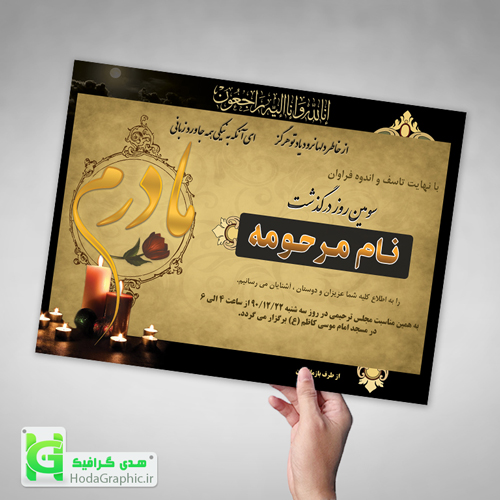 انا لله و انا الیه راجعون
از خاطر دلها نرود یاد تو هرگز ای آنکه به نیکی همه جا ورد زبانی
با نهایت تاسف و اندوه فراوان
مادرم
سومین روز درگذشت
نام مرحومه
را به اطلاع کلیه شما عزیزان و دوستان ، آشنایان می رسانیم.
به همین مناسبت مجلس ترحیمی در روز سه شنبه ۹۰/۱۲/۲۲ از ساعت ۴ الی ۶
در مسجد امام موسی کاظم (ع) برگزار می گردد.
از طرف
هدی گرافیک
HodaGraphic.ir